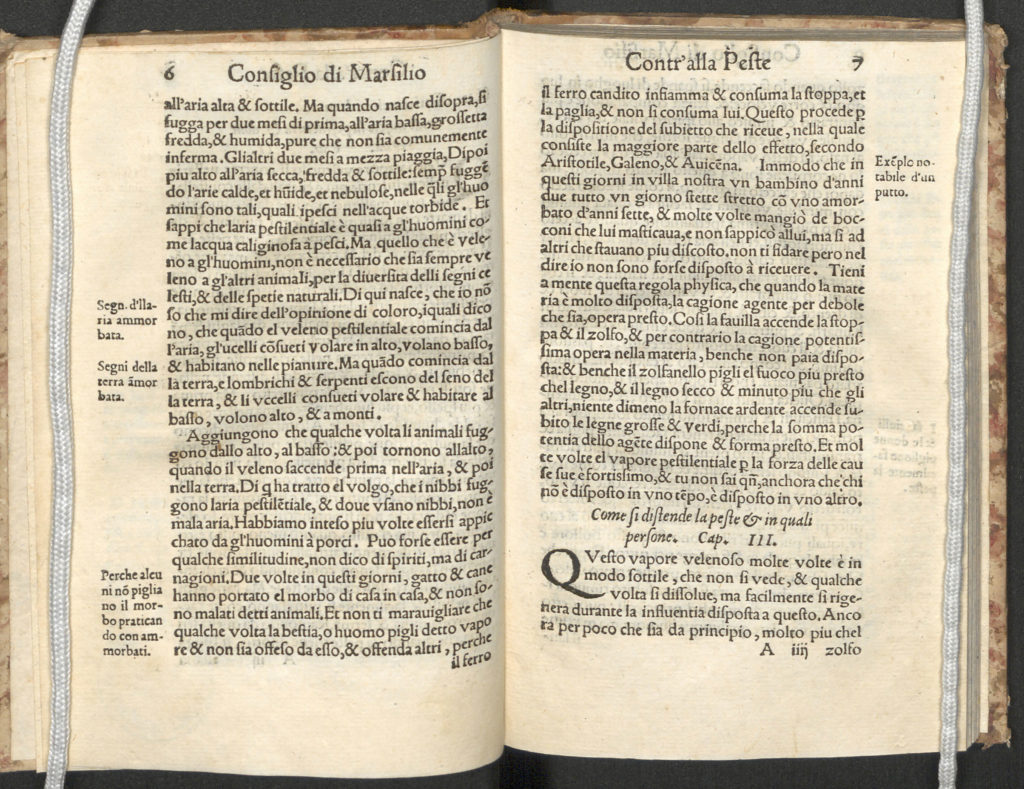 6 Consiglio di Marsilio
all'aria alta & sottile. Ma quando nasce disopra, si
fugga per due mesi di prima, all'aria bassa, grossetta
fredda, & humida, pure che non sia comunemente
inferma. Glialtri due mesi a mezza piaggia, Dipoi
piu alto all'aria secca, fredda & sottile: semp̃ fuggẽ
do l'arie calde, et hũide, et nebulose, nelle q̃li gl'huo
mini sono tali, quali ipesci nell'acque torbide. Et
sappi che laria pestilentiale è quasi a gl'huomini co-
me lacqua caliginosa à pesci. Ma quello che è vele-
no a gl'huomini, non è necessario che sia sempre ve
leno a gl'altri animali, per la diuersita delli segni ce
lesti, & delle spetie naturali. Di qui nasce, che io nõ
so che mi dire dell'opinione di coloro, iquali dico
no, che quãdo el veleno pestilentiale comincia dal
l'aria, gl'ucelli cõsueti volare in alto, volano basso,
& habitano nelle pianure. Ma quãdo comincia dal
la terra, e lombrichi & serpenti escono del seno del
la terra, & li vccelli consueti volare & habitare al
basso, volono alto, & a monti.
Aggiungono che qualche volta li animali fug-
gono dallo alto, al basso; & poi tornono allalto,
quando il veleno saccende prima nell'aria, & poi
nella terra. Di q̃ ha tratto el volgo, che i nibbi fug-
gono laria pestilẽtiale, & doue vsano nibbi, non è
mala aria. Habbiamo inteso piu volte essersi appic
chato da gl'huomini à porci. Puo forse essere per
qualche similitudine, non dico di spiriti, ma di car-
nagioni. Due volte in questi giorni, gatto & cane
hanno portato el morbo di casa in casa, & non so-
no malati detti animali. Et non ti marauigliare che
qualche volta la bestia, o huomo pigli detto vapo
re & non sia offeso da esso, & offenda altri, perche
il ferro
Segn. d'lla-
ria ammor
bata.
Segni della
terra ãmor
bata.
Perche alcu
ni nõ piglia
no il mor-
bo pratican
do con am-
morbati.
Contr'alla Peste 7
il ferro candito infiamma & consuma la stoppa, et
la paglia, & non si consuma lui. Questo procede p̲
la dispositione del subietto che riceue, nella quale
consiste la maggiore parte dello effetto, secondo
Aristotile, Galeno, & Auicẽna. Immodo che in
questi giorni in villa nostra vn bambino d'anni
due tutto vn giorno stette stretto cõ vno amor-
bato d'anni sette, & molte volte mangiò de boc-
coni che lui masticaua, e non sappicò allui, ma si ad
altri che stauano piu discosto. non ti fidare pero nel
dire io non sono forse disposto à riceuere. Tieni
a mente questa regola physica, che quando la mate
ria è molto disposta, la cagione agente per debole
che sia, opera presto. Cosi la fauilla accende la stop-
pa & il zolfo, & per contrario la cagione potentis-
sima opera nella materia, benche non paia dispo-
sta: & benche il zolfanello pigli el fuoco piu presto
chel legno, & il legno secco & minuto piu che gli
altri, niente dimeno la fornace ardente accende su-
bito le legne grosse & verdi, perche la somma po-
tentia dello agẽte dispone & forma presto. Et mol
te volte el vapore pestilentiale p̲ la forza delle cau
se sue è fortissimo, & tu non sai qñ, anchora che chi
nõ è disposto in vno tẽpo, è disposto in vno altro.
Come si distende la peste & in quali
persone. Cap. III.
QVesto vapore velenoso molte volte è in
modo sottile, che non si vede, & qualche
volta si dissolue, ma facilmente si rige-
nera durante la influentia disposta a questo. Anco
ra per poco che sia da principio, molto piu chel
A iiij zolfo
Exẽplo no-
tabile d'un
putto.